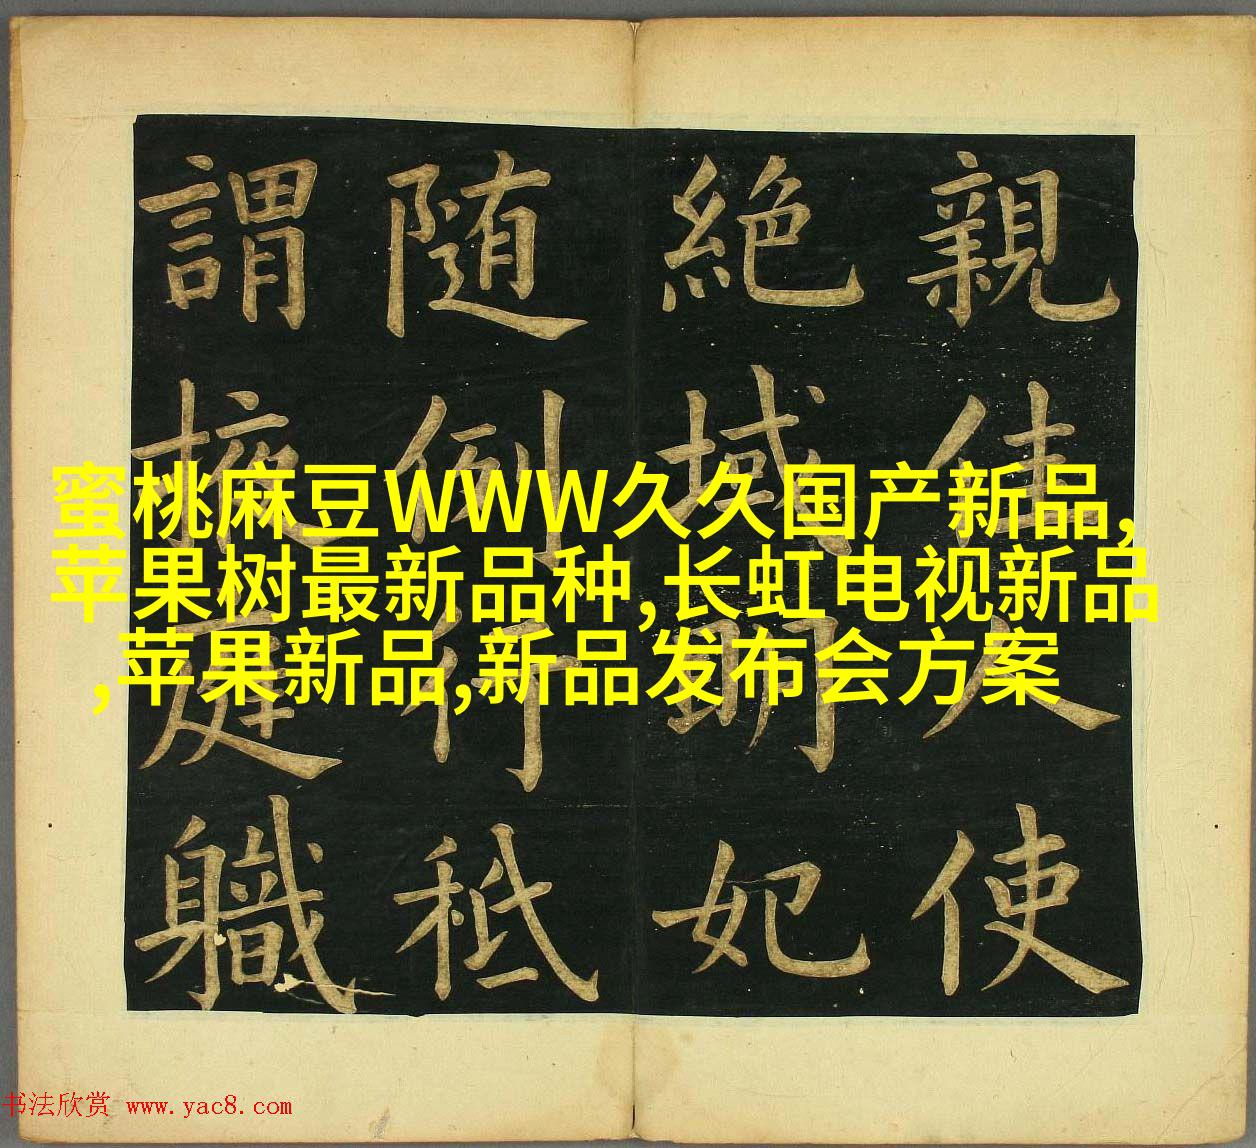 親佳人使
絶域明妃
随例行秪
謂掖庭軄
蜜桃麻豆WWW久久国产新品,
苹果树最新品种,长虹电视新品
,苹果新品,新品发布会方案
书法欣赏 www.yac8.com